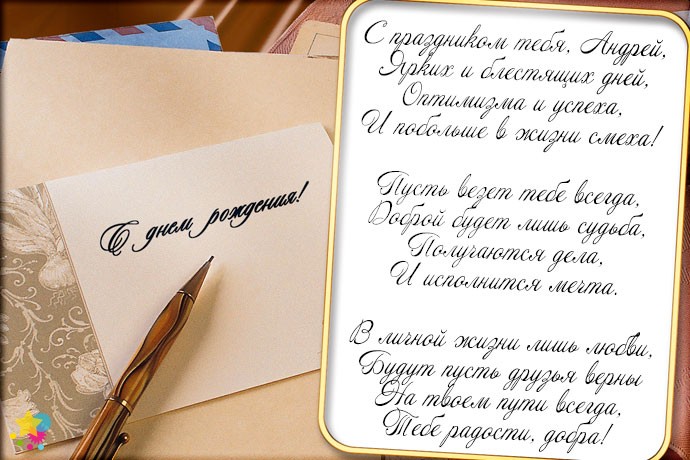 С днем рождения!
С праздником тебя, Андрей,
Ярких и блестящих дней,
Оптимизма и успеха,
И побольше в жизни смеха!
Пусть везет тебе всегда,
Доброй будет лишь судьба,
Получаются дела,
И исполнится мечта.
В личной жизни лишь любви,
Будут пусть друзья верны
На твоем пути всегда,
Тебе радости, добра!